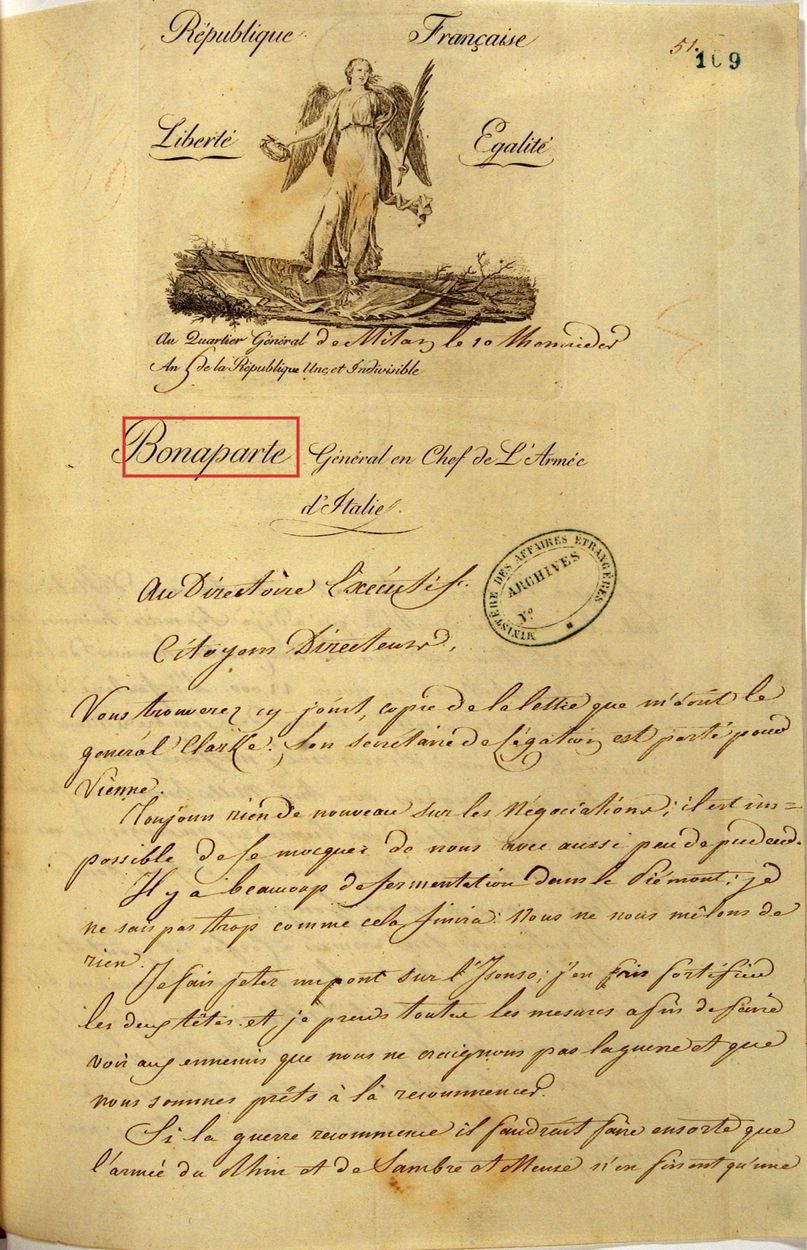 République Française
51.
109
Liberté Egalité
Au Quartier Général de Milan, le 10 Thermidor
An 5 de la République Une, et Indivisible
Bonaparte Général en Chef de L'Armée
d'Italie.
MINISTÈRE DES AFFAIRES ETRANGÈRES
ARCHIVES
N°
Au Directoire Exécutif.
Citoyens Directeurs,
Vous trouverez cy joint, copie de la lettre que m'écrit le
général Clarke. Son secrétaire de légation est parti pour
Vienne.
Toujours rien de nouveau sur les Négociations; il est im=
possible de se mocquer de nous avec aussi peu de pudeur.
Il y a beaucoup de fermentation dans le Piémont; je
ne sais pas trop comme cela finira. Nous ne nous mêlons de
rien.
Je fais jeter un pont sur l'Isonso; j'en fais fortifier
les deux têtes et, je prends toutes les mesures afin de faire
voir aux ennemis que nous ne craignons pas la guerre et que
nous sommes prêts à la recommencer.
Si la guerre recommence il faudrait faire ensorte que
l'armée du Rhin et de Sambre et Meuse n'en fissent qu'une